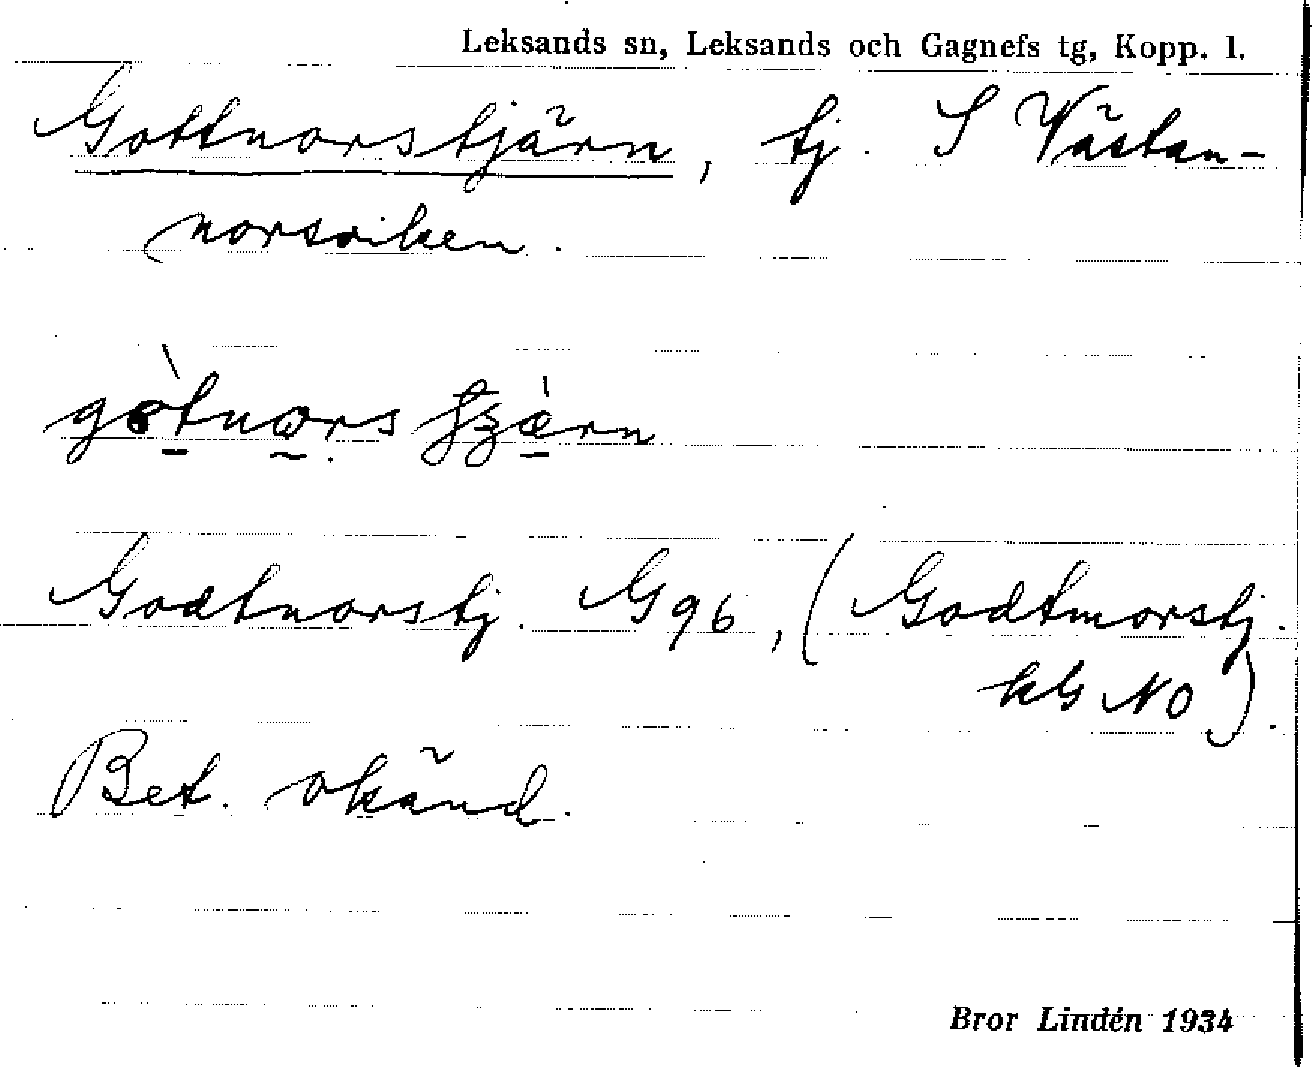 Leksands sn, Leksands och Gagnefs tg, Kopp. l.
Gottnorstjärn, tj. S Västan-
norsviken.
Godtnorstj. G96, (Godtmorstj.
kG NO).
Bet. okänd.
Bror Lindén 1934